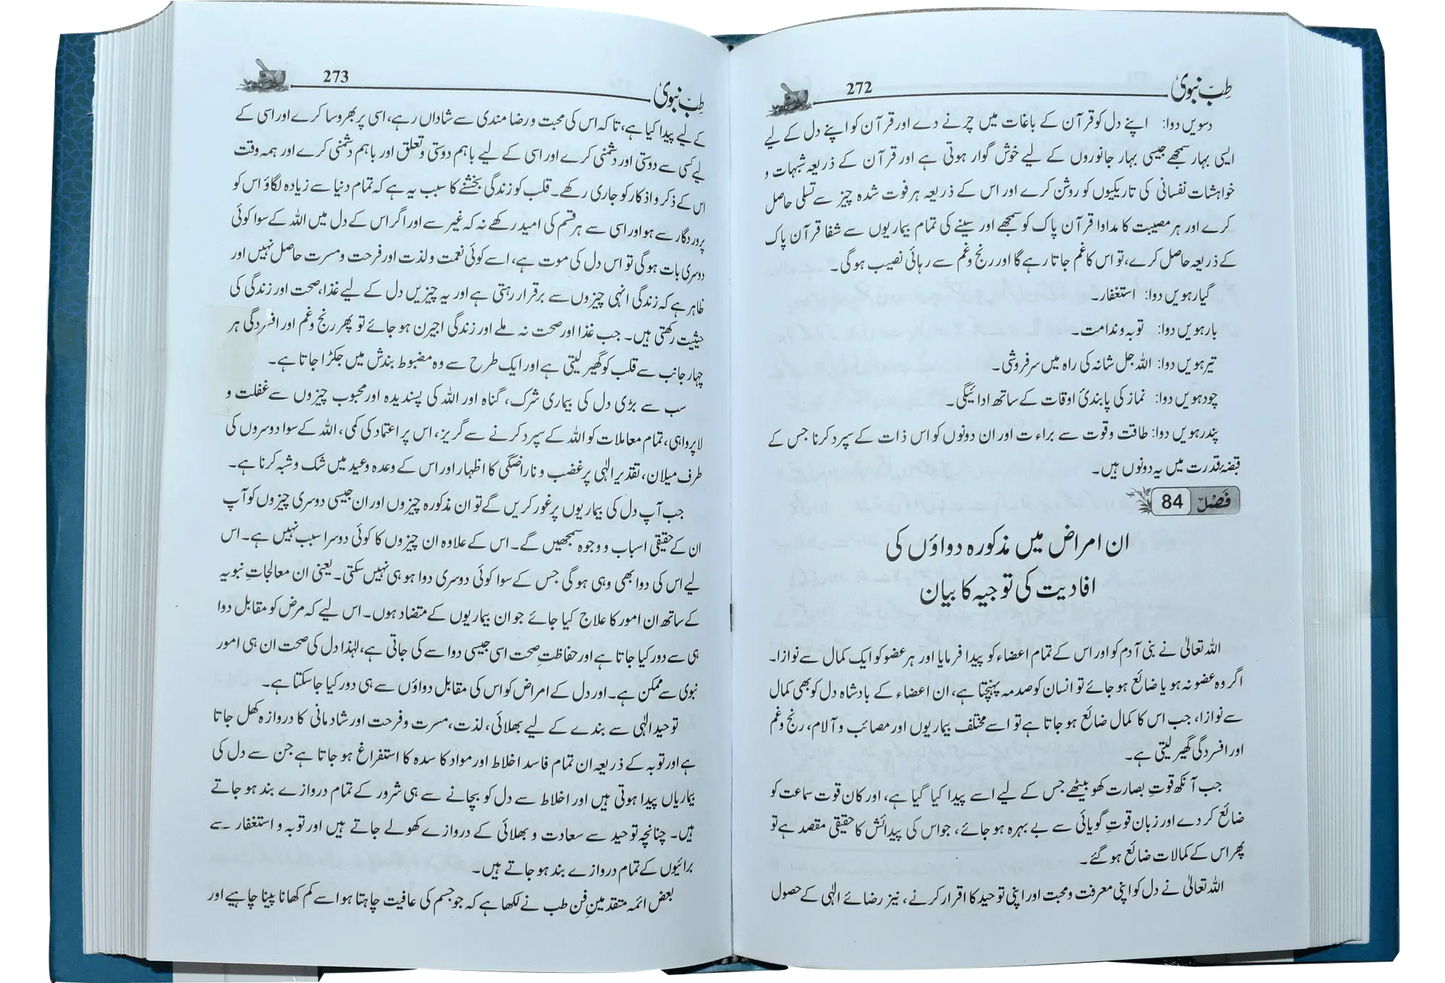 طِبّ نبویؐ
272
دسویں دوا: اپنے دل کو قرآن کے باغات میں چرنے دے اور قرآن کو اپنے دل کے لیے
ایسی بہار سمجھے جیسی بہار جانوروں کے لیے خوش گوار ہوتی ہے اور قرآن کے ذریعہ شبہات و
خواہشات نفسانی کی تاریکیوں کو روشن کرے اور اس کے ذریعہ ہر فوت شدہ چیز سے تسلی حاصل
کرے اور ہر مصیبت کا مداوا قرآن پاک کو سمجھے اور سینے کی تمام بیماریوں سے شفا قرآن پاک
کے ذریعہ حاصل کرے، تو اس کا غم جاتا رہے گا اور رنج و غم سے رہائی نصیب ہوگی۔
گیارہویں دوا: استغفار۔
بارہویں دوا: توبہ و ندامت۔
تیرہویں دوا: اللہ جل شانہ کی راہ میں سرفروشی۔
چودہویں دوا: نماز کی پابندیٔ اوقات کے ساتھ ادائیگی۔
پندرہویں دوا: طاقت و قوت سے براءت اور ان دونوں کو اس ذات کے سپرد کرنا جس کے
قبضۂ قدرت میں یہ دونوں ہیں۔
فَصْل 84
ان امراض میں مذکورہ دواؤں کی
افادیت کی توجیہ کا بیان
اللہ تعالیٰ نے بنی آدم کو اور اس کے تمام اعضاء کو پیدا فرمایا اور ہر عضو کو ایک کمال سے نوازا۔
اگر وہ عضو نہ ہو یا ضائع ہو جائے تو انسان کو صدمہ پہنچتا ہے، ان اعضاء کے بادشاہ دل کو بھی کمال
سے نوازا، جب اس کا کمال ضائع ہو جاتا ہے تو اسے مختلف بیماریوں اور مصائب و آلام، رنج و غم
اور افسردگی گھیر لیتی ہے۔
جب آنکھ قوتِ بصارت کھو بیٹھے جس کے لیے اسے پیدا کیا گیا ہے، اور کان قوت سماعت کو
ضائع کر دے اور زبان قوتِ گویائی سے بے بہرہ ہو جائے، جو اس کی پیدائش کا حقیقی مقصد ہے تو
پھر اس کے کمالات ضائع ہو گئے۔
اللہ تعالیٰ نے دل کو اپنی معرفت و محبت اور اپنی توحید کا اقرار کرنے، نیز رضائے الٰہی کے حصول
طِبّ نبویؐ
273
کے لیے پیدا کیا ہے، تاکہ اس کی محبت و رضا مندی سے شاداں رہے، اسی پر بھروسا کرے اور اسی کے
لیے کسی سے دوستی اور دشمنی کرے اور اسی کے لیے باہم دوستی و تعلق اور باہم دشمنی کرے اور ہمہ وقت
اس کے ذکر و اذکار کو جاری رکھے۔ قلب کو زندگی بخشنے کا سبب یہ ہے کہ تمام دنیا سے زیادہ لگاؤ اس کو
پروردگار سے ہو اور اسی سے ہر قسم کی امید رکھے نہ کہ غیر سے اور اگر اس کے دل میں اللہ کے سوا کوئی
دوسری بات ہوگی تو اس دل کی موت ہے، اسے کوئی نعمت و لذت اور فرحت و مسرت حاصل نہیں اور
ظاہر ہے کہ زندگی انہی چیزوں سے برقرار رہتی ہے اور یہ چیزیں دل کے لیے غذا، صحت اور زندگی کی
حیثیت رکھتی ہیں۔ جب غذا اور صحت نہ ملے اور زندگی اجیرن ہو جائے تو پھر رنج و غم اور افسردگی ہر
چہار جانب سے قلب کو گھیر لیتی ہے اور ایک طرح سے وہ مضبوط بندش میں جکڑا جاتا ہے۔
سب سے بڑی دل کی بیماری شرک، گناہ اور اللہ کی پسندیدہ اور محبوب چیزوں سے غفلت و
لاپرواہی، تمام معاملات کو اللہ کے سپرد کرنے سے گریز، اس پر اعتماد کی کمی، اللہ کے سوا دوسروں کی
طرف میلان، تقدیر الٰہی پر غضب و ناراضگی کا اظہار اور اس کے وعدہ و وعید میں شک و شبہ کرنا ہے۔
جب آپ دل کی بیماریوں پر غور کریں گے تو ان مذکورہ چیزوں اور ان جیسی دوسری چیزوں کو آپ
ان کے حقیقی اسباب و وجوہ سمجھیں گے۔ اس کے علاوہ ان چیزوں کا کوئی دوسرا سبب نہیں ہے۔ اس
لیے اس کی دوا بھی وہی ہوگی جس کے سوا کوئی دوسری دوا ہو ہی نہیں سکتی۔ یعنی ان معالجاتِ نبویہ
کے ساتھ ان امور کا علاج کیا جائے جو ان بیماریوں کے متضاد ہوں۔ اس لیے کہ مرض کو مقابل دوا
ہی سے دور کیا جاتا ہے اور حفاظتِ صحت اسی جیسی دوا سے کی جاتی ہے، لہٰذا دل کی صحت ان ہی امور
نبوی سے ممکن ہے۔ اور دل کے امراض کو اس کی مقابل دواؤں سے ہی دور کیا جاسکتا ہے۔
توحید الٰہی سے بندے کے لیے بھلائی، لذت، مسرت و فرحت اور شادمانی کا دروازہ کھل جاتا
ہے اور توبہ کے ذریعہ ان تمام فاسد اخلاط اور مواد کاسدہ کا استفراغ ہو جاتا ہے جن سے دل کی
بیماریاں پیدا ہوتی ہیں اور اخلاط سے دل کو بچانے سے ہی شرور کے تمام دروازے بند ہو جاتے
ہیں۔ چنانچہ توحید سے سعادت و بھلائی کے دروازے کھولے جاتے ہیں اور توبہ و استغفار سے
برائیوں کے تمام دروازے بند ہو جاتے ہیں۔
بعض ائمہ متقدمین فن طب نے لکھا ہے کہ جو جسم کی عافیت چاہتا ہو اسے کم کھانا پینا چاہیے اور